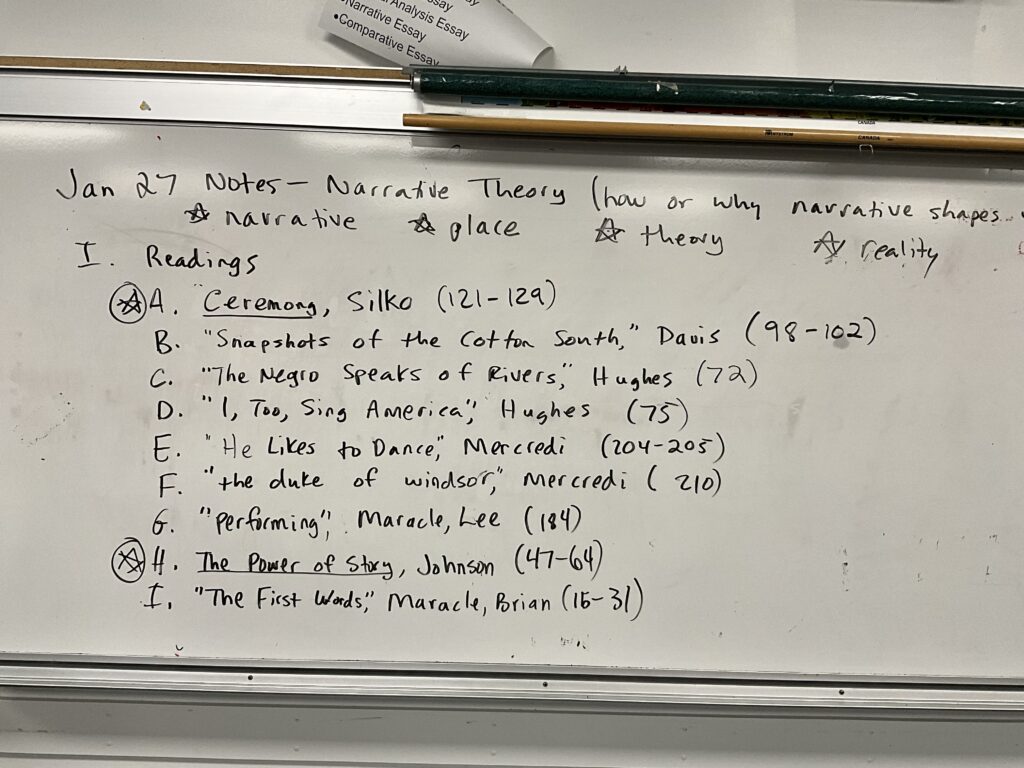 Analysis Essay
Narrative Essay
•Comparative Essay
CANADA
CANADA
Jan 27 Notes — Narrative Theory (how or why narrative shapes..
☆ narrative ☆ place ☆ theory ☆ reality
I. Readings
☆ A. Ceremony, Silko (121-129)
B. "Snapshots of the Cotton South," Davis (98-102)
C. "The Negro Speaks of Rivers," Hughes (72)
D. "I, Too, Sing America", Hughes (75)
E. "He Likes to Dance", Mercredi (204-205)
F. "the duke of windsor," Mercredi (210)
G. "performing", Maracle, Lee (184)
☆ H. The Power of Story, Johnson (47-64)
I. "The First Words," Maracle, Brian (15-31)